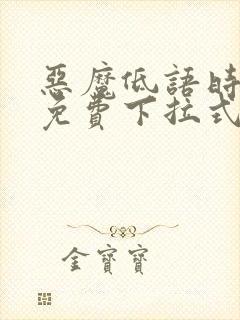 惡魔低語時
免費下拉式
金寶寶